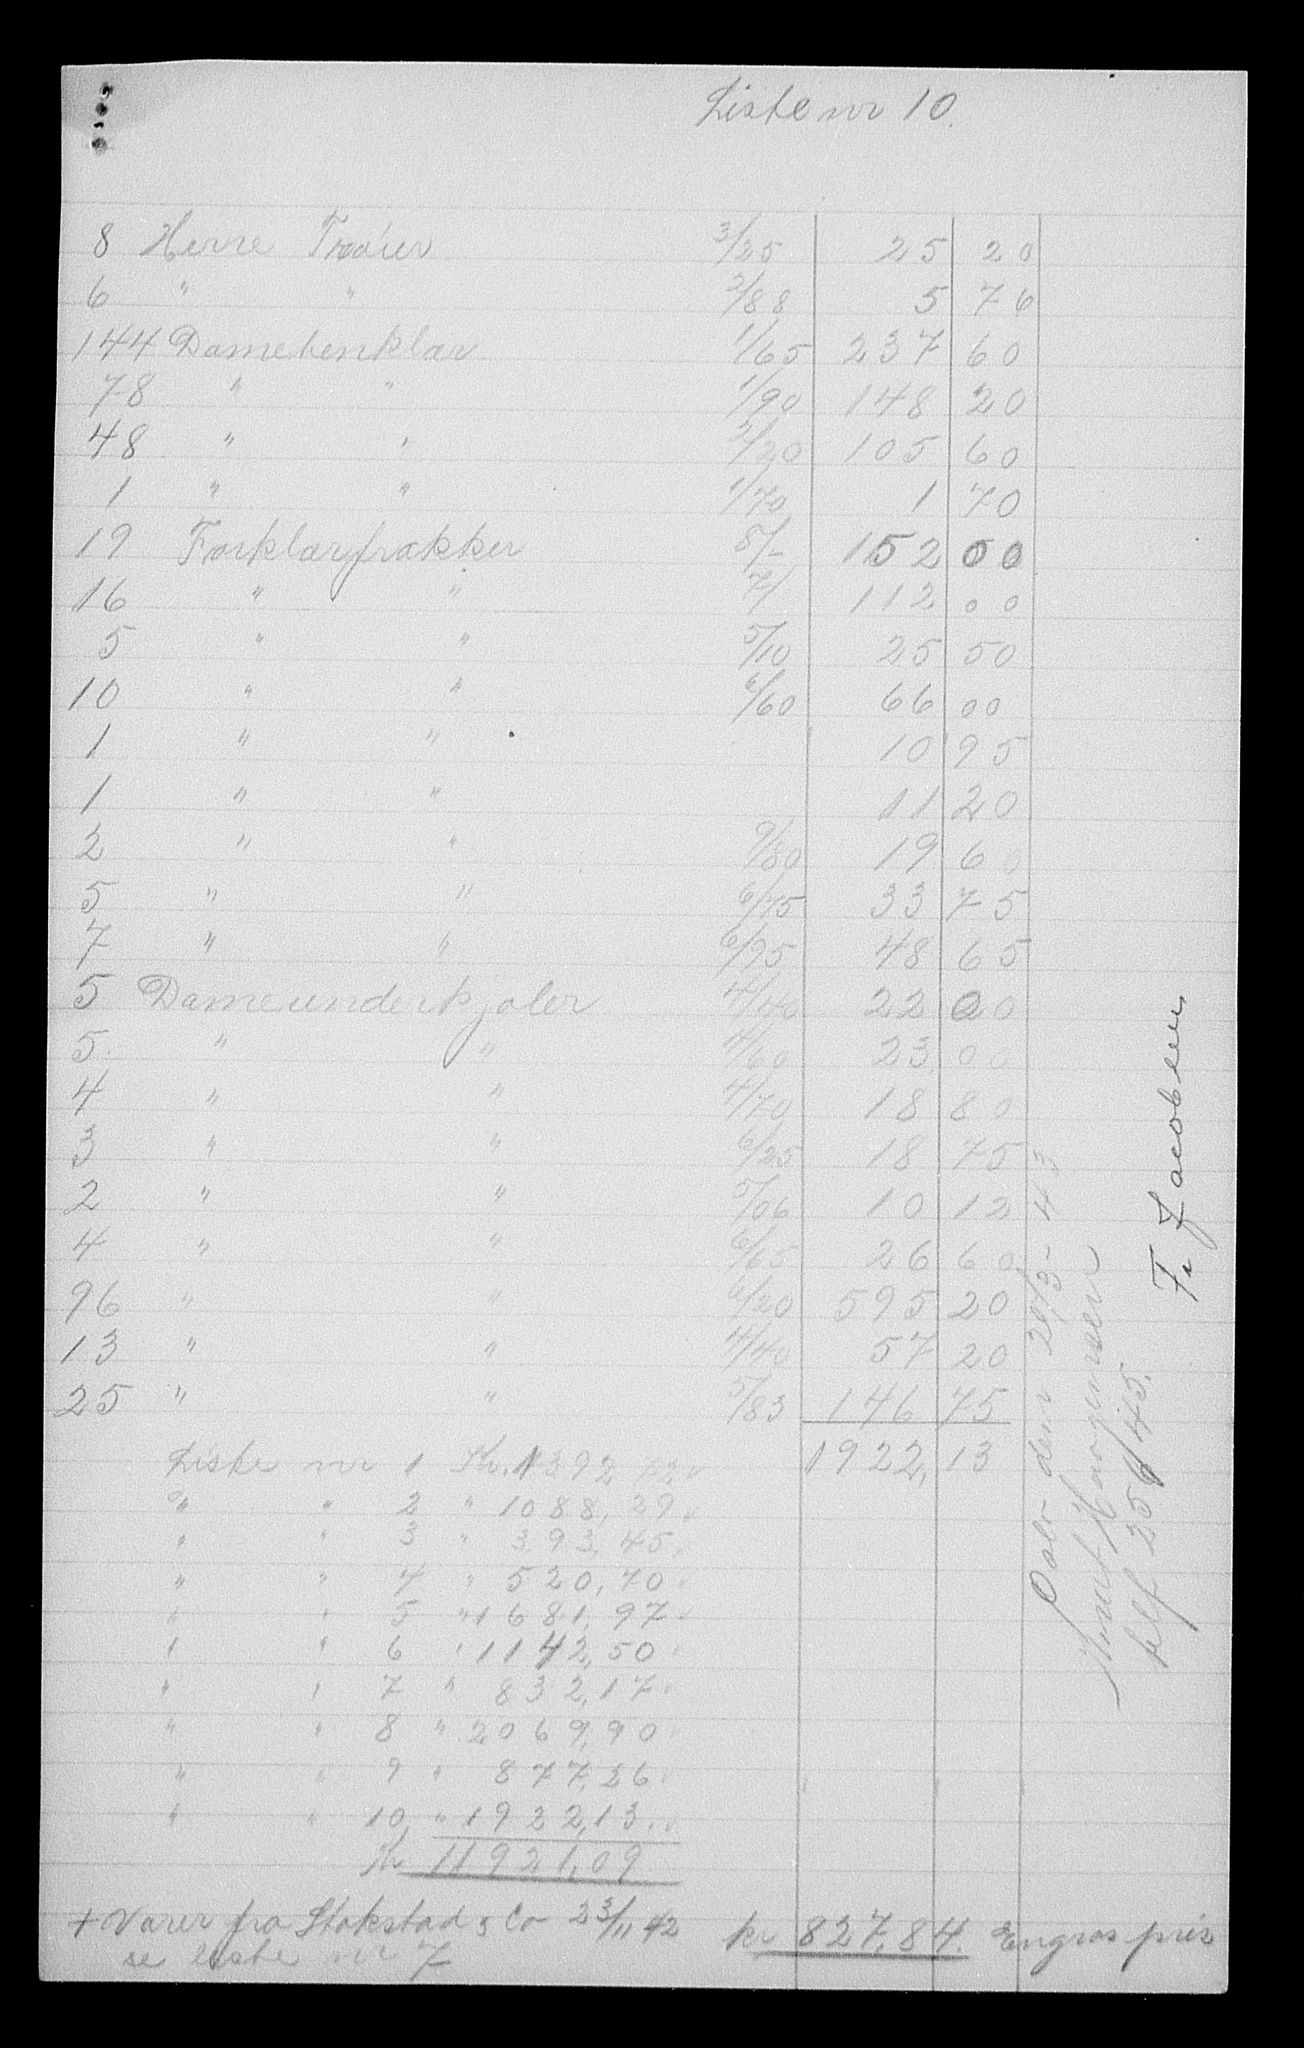 Liste nr 10.
8 Herre Trøier 3/25 25 20
6 " " 2/88 5 76
144 Damebenklær 1/65 237 60
78 " " 1/90 148 20
48 " " 2/20 105 60
1 " " 1/70 1 70
19 Forklærfrakker 8/- 152 00
16 " " 7/ 112 00
5 " " 5/10 25 50
10 " " 6/60 66 00
1 " " 10 95
1 " " 11 20
2 " " 9/80 19 60
5 " " 6/75 33 75
7 " " 6/95 48 65
5 Dameunderkjoler 4/40 22 00
5 " " 4/60 23 00
4 " " 4/70 18 80
3 " " 6/25 18 75
2 " " 5/06 10 12
4 " " 6/65 26 60
96 " " 6/20 595 20
13 " " 4/40 57 20
25 " " 5/83 146 75
1922,13
Liste nr 1 Kr. 1392
" " 2 " 1088,29
" " 3 " 393,45
" " 4 " 520,70
" " 5 " 1681,97
" " 6 " 1142,50
" " 7 " 832,17
" " 8 " 2069,90
" " 9 " 877,26
" " 10 " 1922,13
Kr 11921,09
+ Varer fra Stokstad & Co 23/11 42 kr 827,84. Engros pris
se liste nr 7
Oslo den 43
telf
F. Jacobsen